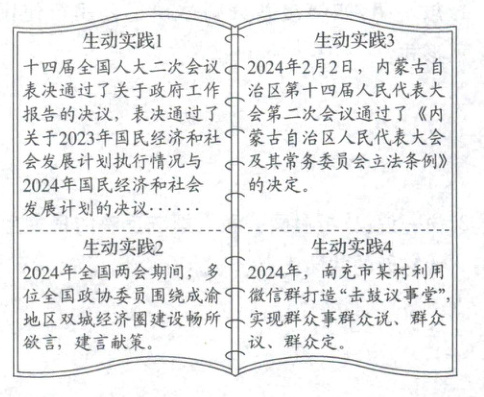 生动实践1
十四届全国人大二次会议
表决通过了关于政府工作
报告的决议，表决通过了
关于2023年国民经济和社
会发展计划执行情况与
2024年国民经济和社会
发展计划的决议······
生动实践2
2024年全国两会期间，多
位全国政协委员围绕成渝
地区双城经济圈建设畅所
欲言，建言献策。
生动实践3
2024年2月2日，内蒙古自
治区第十四届人民代表大
会第二次会议通过了《内
蒙古自治区人民代表大会
及其常务委员会立法条例》
的决定。
生动实践4
2024年，南充市某村利用
微信群打造“去鼓议事堂”，
实现群众事群众说、群众
议、群众定。